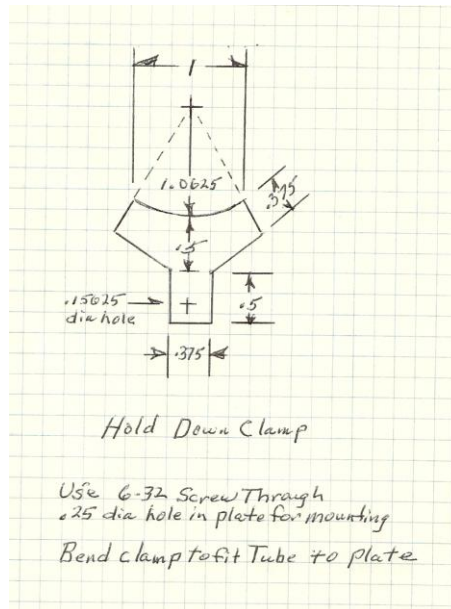 1
1.0625
.375
.5
.15625
dia hole
.5
.375
Hold Down Clamp
Use 6-32 Screw Through
.25 dia hole in plate for mounting
Bend clamp to fit Tube to plate